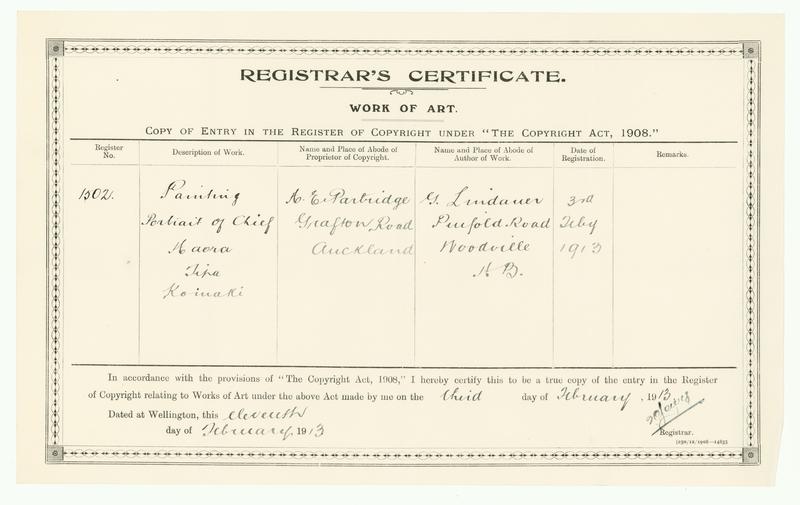 REGISTRAR'S CERTIFICATE.
WORK OF ART.
COPY OF ENTRY IN THE REGISTER OF COPYRIGHT UNDER "THE COPYRIGHT ACT, 1908."
Register No.
Description of Work.
Name and Place of Abode of Proprietor of Copyright.
Name and Place of Abode of Author of Work.
Date of Registration.
Remarks.
1502. Painting H. E. Partridge G. Lindauer 3rd
Portrait of Chief Grafton Road Pinfold Road Feby
Auckland Woodville 1913
Tipa H B.
Koinaki
In accordance with the provisions of "The Copyright Act, 1908," I hereby certify this to be a true copy of the entry in the Register
of Copyright relating to Works of Art under the above Act made by me on the third day of February, 1913
Dated at Wellington, this eleventh
day of February, 1913
Registrar.